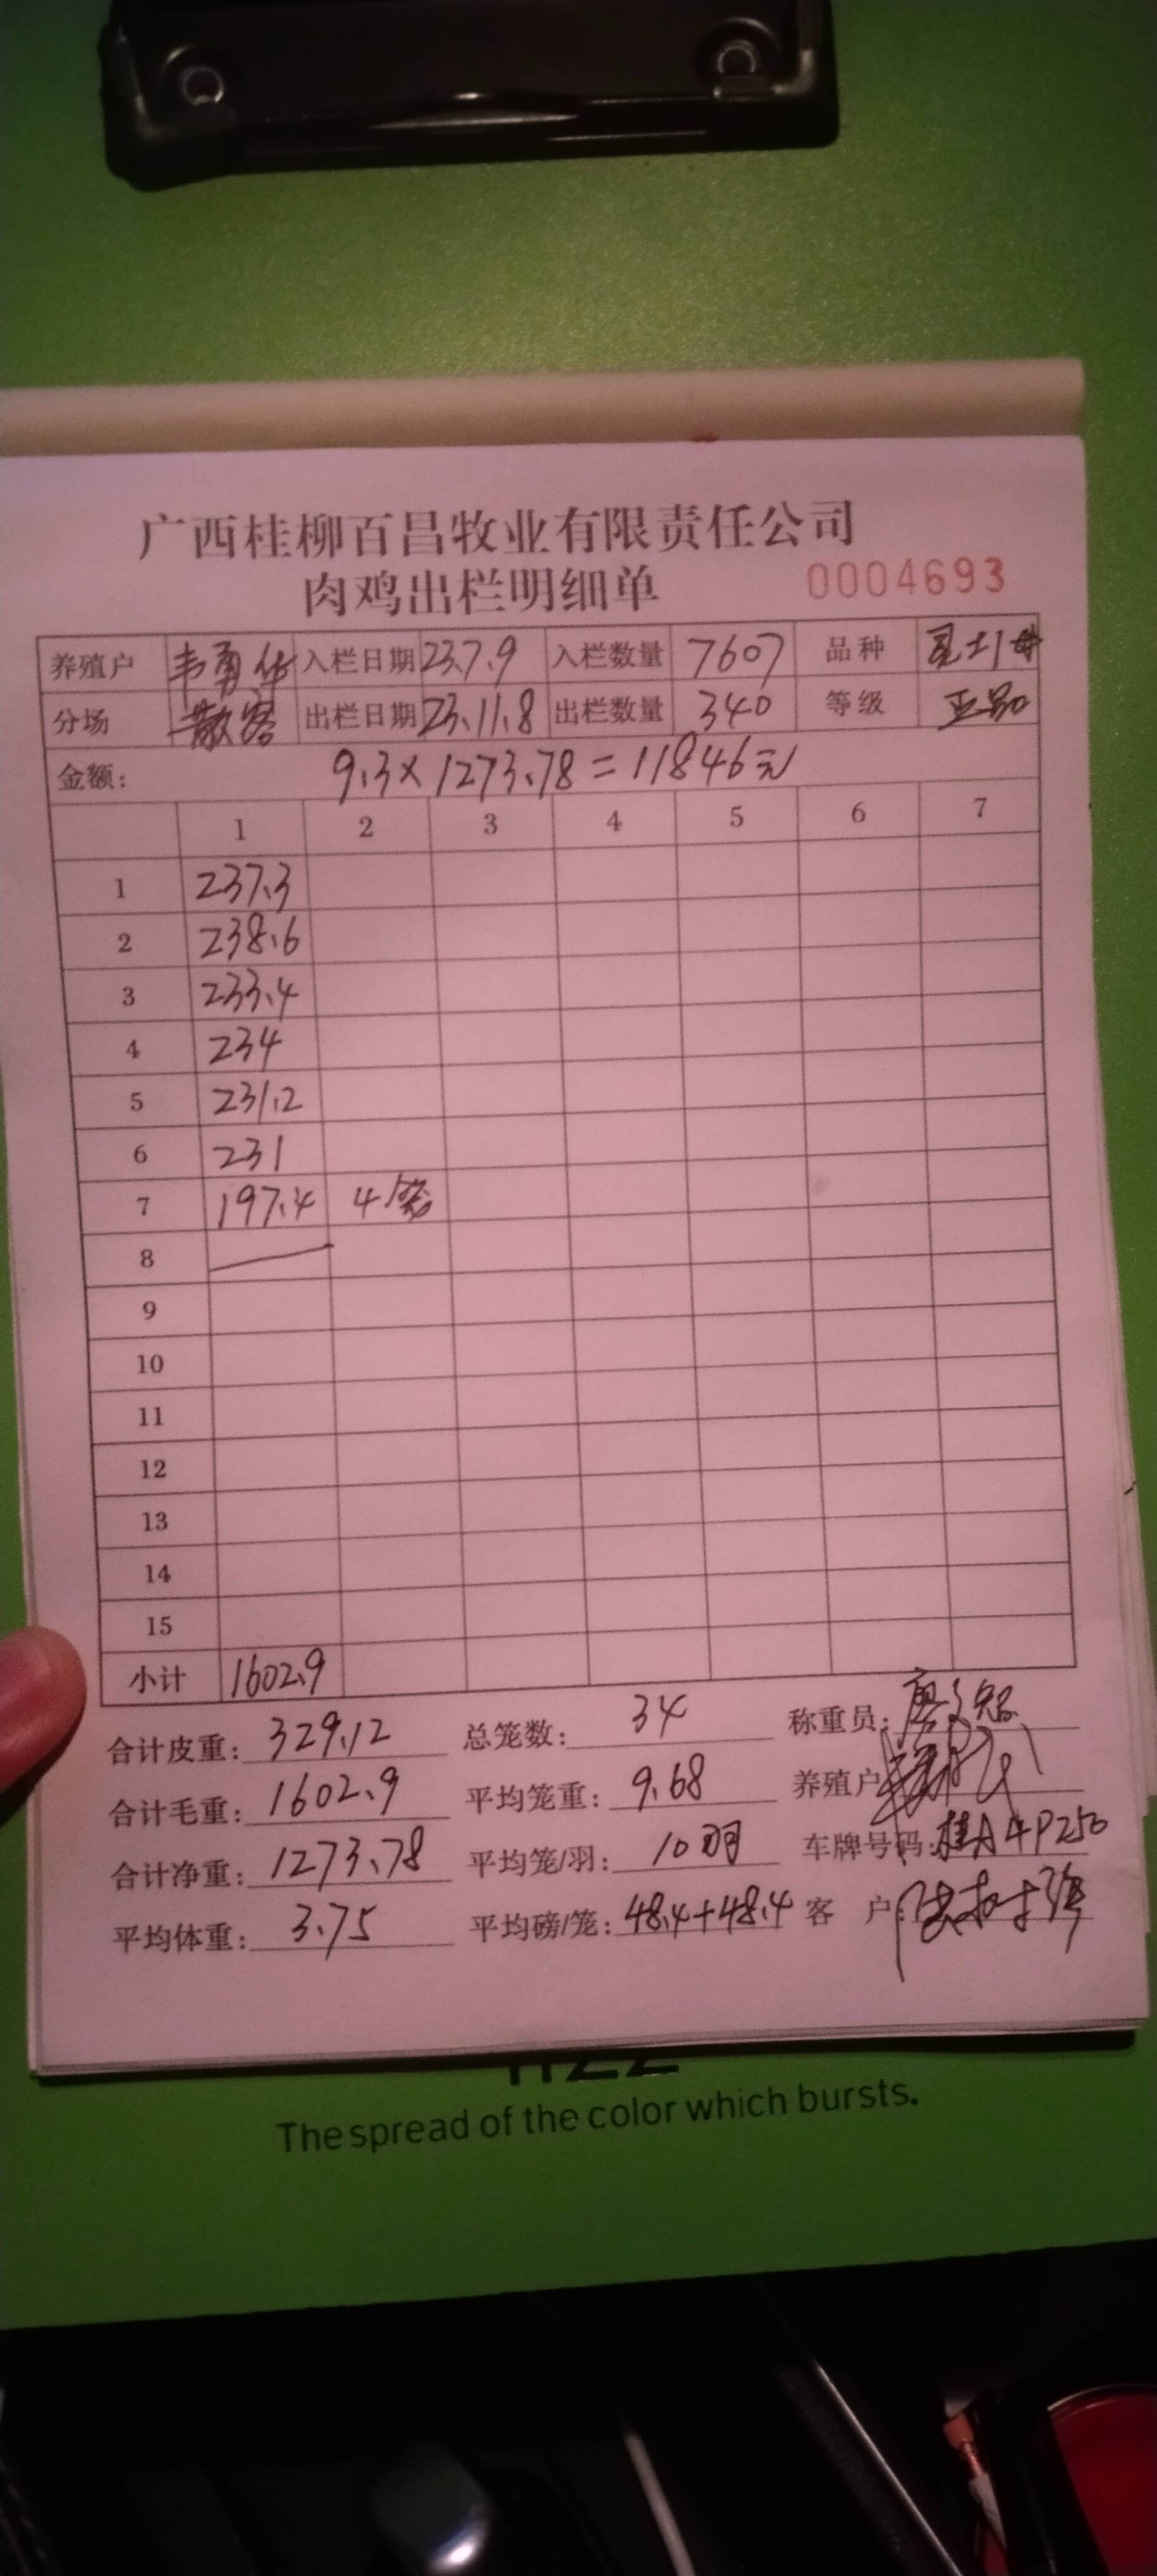 广西桂柳百昌牧业有限责任公司
肉鸡出栏明细单 0004693
养殖户 韦勇华 入栏日期 23.7.9 入栏数量 7607 品种
分场 散客 出栏日期 23.11.8 出栏数量 340 等级
金额: 9.3×1273.78=11846元
1 2 3 4 5 6 7
1 237.3
2 238.6
3 233.4
4 234
5 231.2
6 231
7 197.4 4笼
8
9
10
11
12
13
14
15
小计 1602.9
合计皮重: 329.12 总笼数: 34 称重员:
合计毛重: 1602.9 平均笼重: 9.68 养殖户
合计净重: 1273.78 平均笼/羽: 10羽 车牌号码: 桂A4P250
平均体重: 3.75 平均磅/笼: 48.4+48.4 客 户:
The spread of the color which bursts.